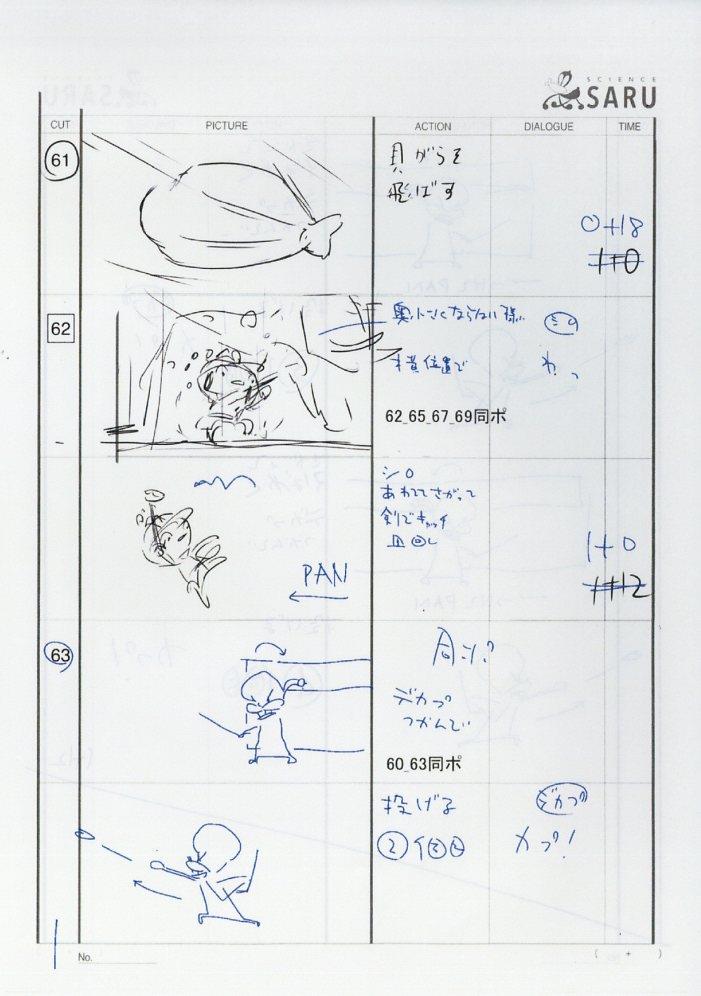 SCIENCE
SARU
CUT PICTURE ACTION DIALOGUE TIME
61
貝がらを
飛ばす
0+18
1+0
62
奥小さくならない様
シロ
横位置で
わっ
62_65_67_69同ポ
シロ
あわててさがって
剣でキャッチ
皿回し
PAN
1+0
1+12
63
同ポ
デカプ
つかんで
60_63同ポ
投げる
デカプ
カプ!
No.
( + )